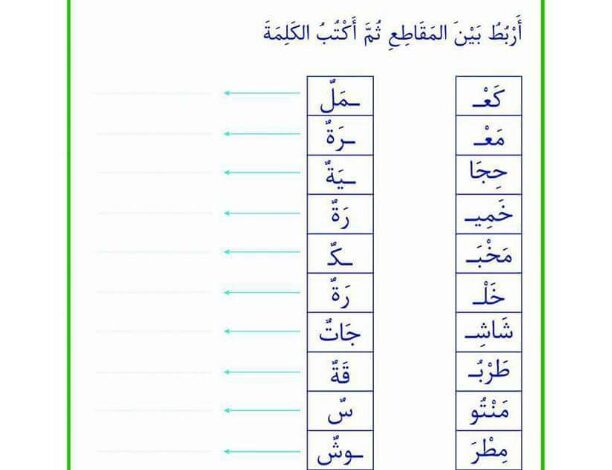 أَرْبُطُ بَيْنَ المَقَاطِعِ ثُمَّ أَكْتُبُ الكَلِمَةَ
كَعْـ ـمَلٌ
مَعْـ ـرَةٌ
حِجَا ـيَةٌ
خَمِيـ رَةٌ
مَخْبَـ ـكٌ
خَلْـ رَةٌ
شَاشِـ جَاتٌ
طَرْبُـ قَةٌ
مَنْتُو سٌ
مِطْرَ ـوشٌ